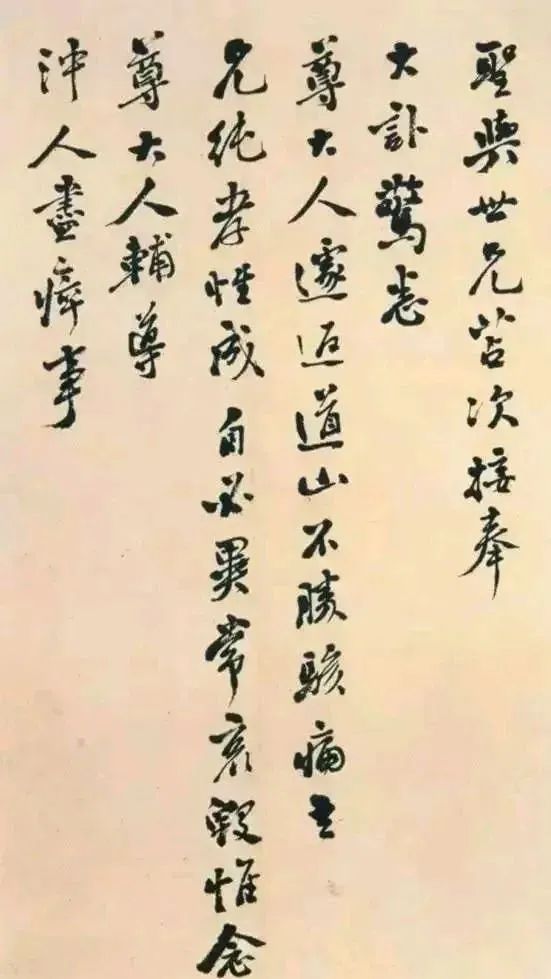 聖與世兄苫次接奉
大訃驚悉
尊大人遽返道山不勝駭痛吾
兄純孝性成自必異常哀毀惟念
尊大人輔導
沖人盡瘁事